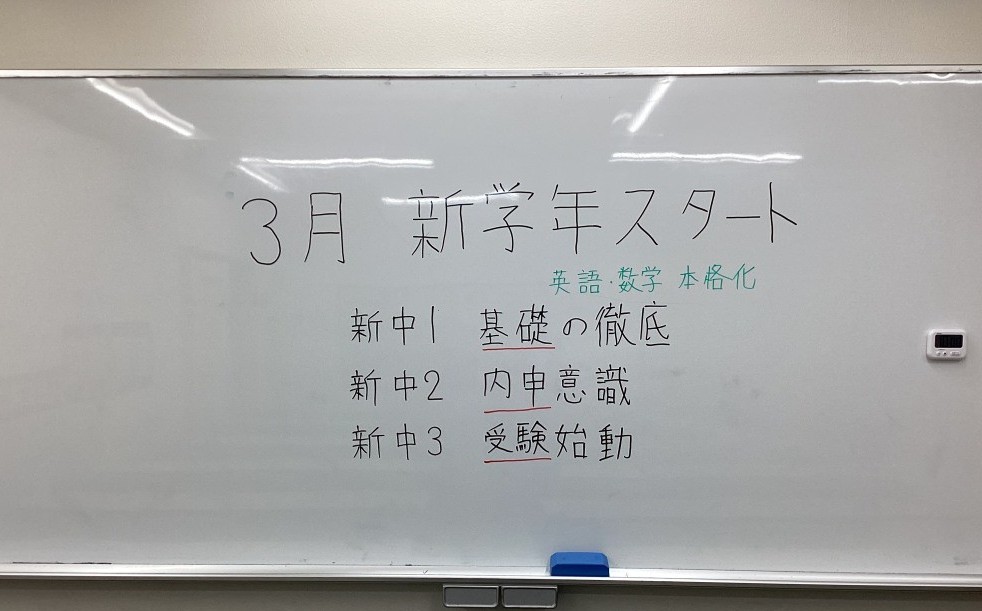 3月 新学年スタート
英語・数学 本格化
新中1 基礎の徹底
新中2 内申意識
新中3 受験始動